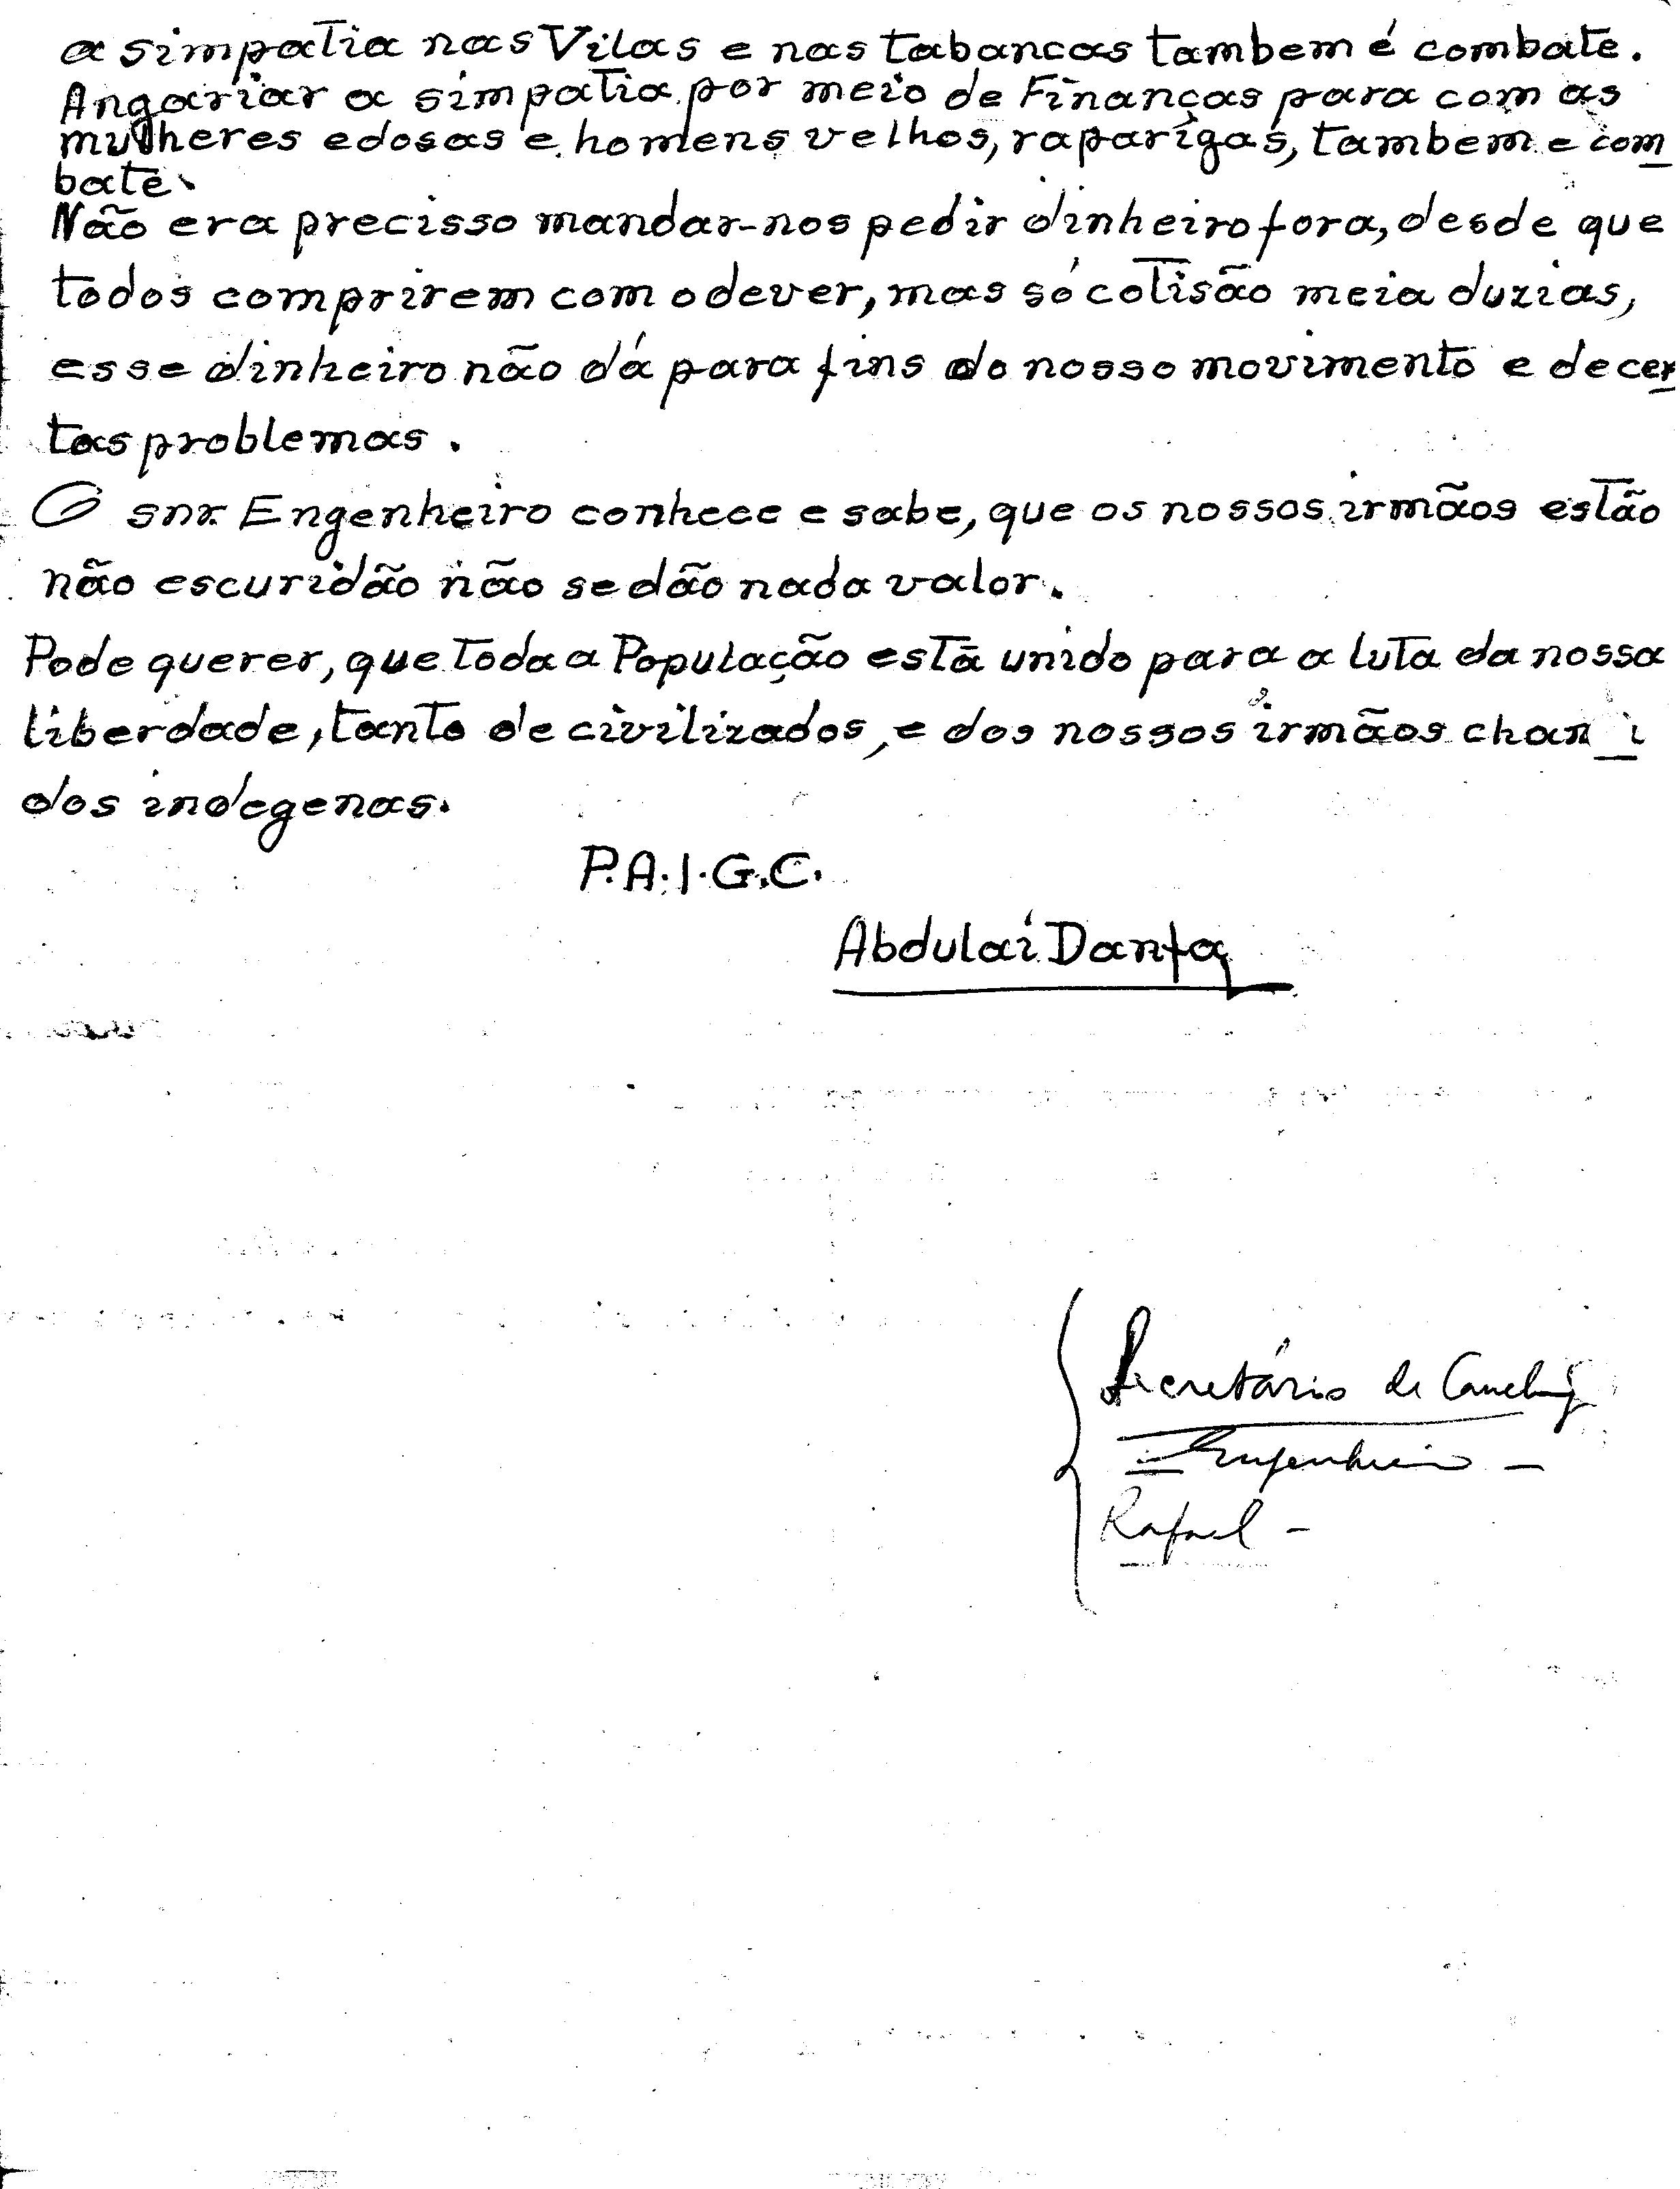 a simpatia nas Vilas e nas tabancas tambem é combate.
Angariar a simpatia por meio de Finanças para com as
mulheres edosas e homens velhos, raparigas, tambem e com
bate.
Não era precisso mandar-nos pedir dinheiro fora, desde que
todos comprirem com o dever, mas só cotisão meia duzias,
esse dinheiro não dá para fins do nosso movimento e de cer
tas problemas.
O snr. Engenheiro conhece e sabe, que os nossos irmãos estão
não escuridão não se dão nada valor.
Pode querer, que toda a População está unido para a luta da nossa
liberdade, tanto de civilizados, e dos nossos irmãos
dos indegenas.
P.A.I.G.C.
Abdulai Danfa
Secretário de
Engenheiro -
Rafael -